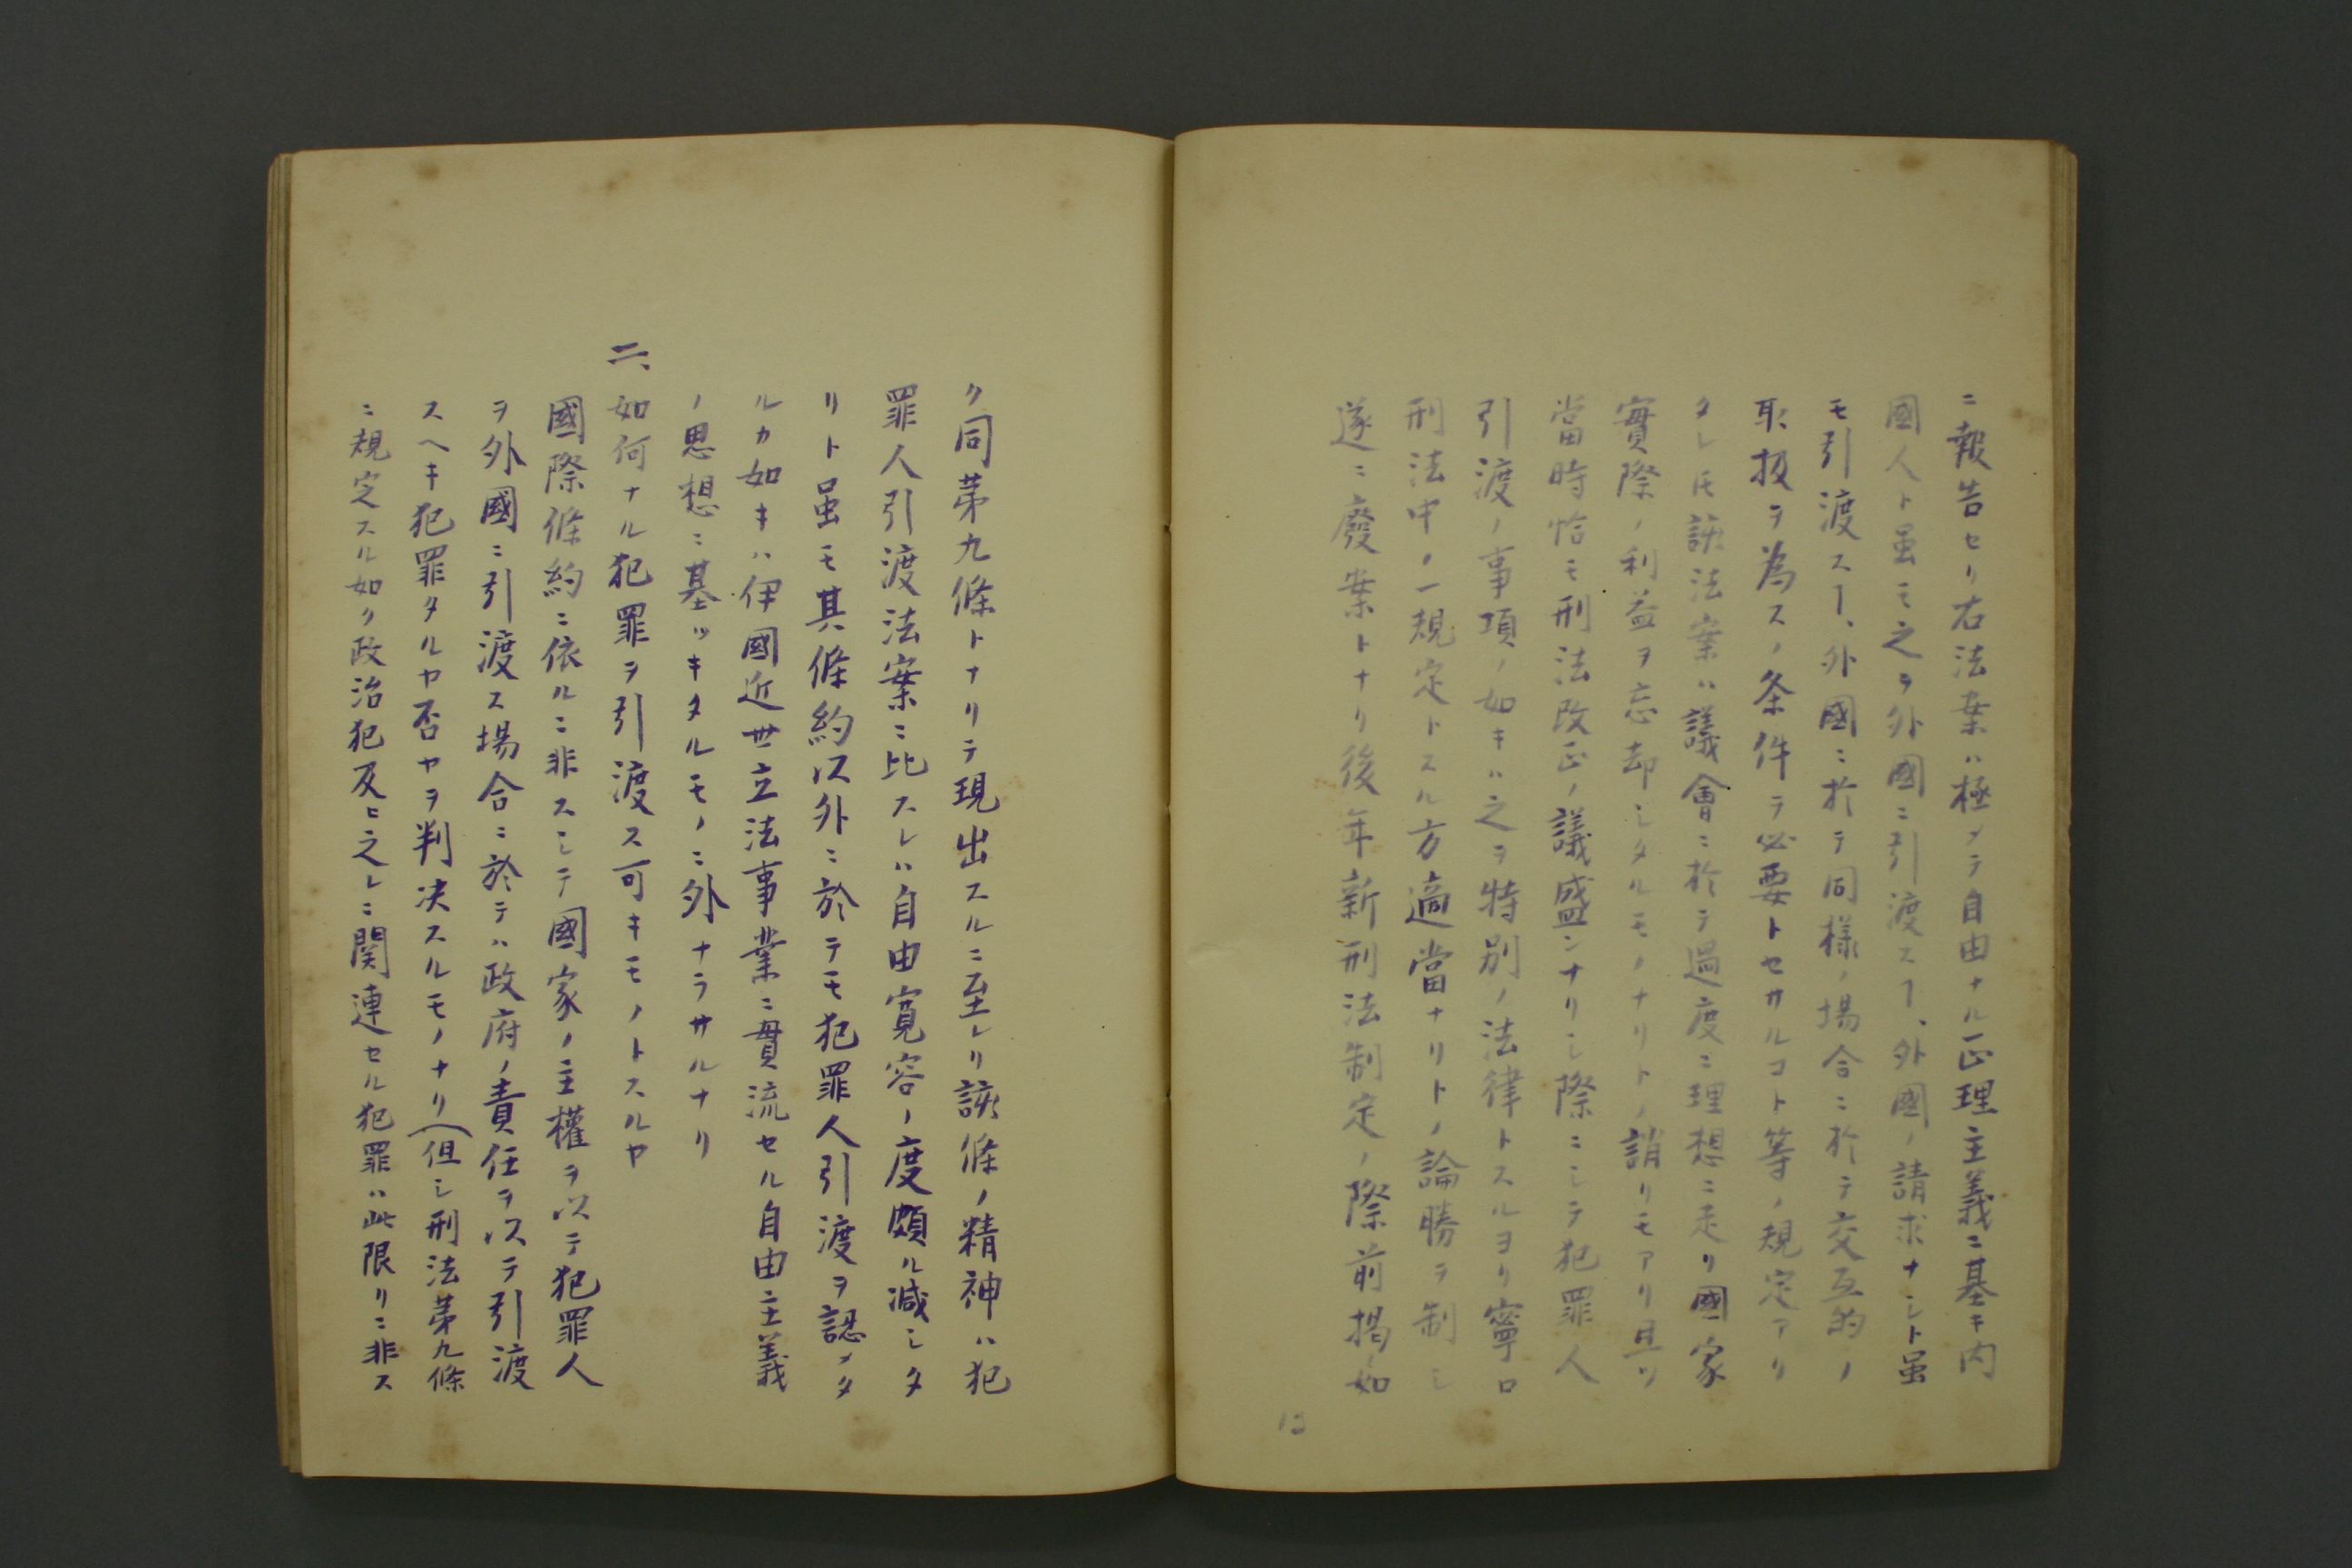 ニ報告セリ右法案ハ極メテ自由ナル正理主義ニ基キ内
國人ト虽モ之ヲ外國ニ引渡スヿ、外國ノ請求ナシト虽
モ引渡スヿ、外國ニ於テ同様ノ場合ニ於テ交互的ノ
取扱ヲ為スノ条件ヲ必要トセサルコト等ノ規定アリ
タレ𪜈該法案ハ議會ニ於テ過度ニ理想ニ走リ國家
實際ノ利益ヲ忘却シタルモノナリトノ誚リモアリ且ツ
當時恰モ刑法改正ノ議盛ンナリシ際ニシテ犯罪人
引渡ノ事項ノ如キハ之ヲ特別ノ法律トスルヨリ寧ロ
刑法中ノ一規定トスル方適當ナリトノ論勝ヲ制シ
遂ニ廢案トナリ後年新刑法制定ノ際前掲ノ如
13
ク同第九條トナリテ現出スルニ至レリ該條ノ精神ハ犯
罪人引渡法案ニ比スレハ自由寛容ノ度頗ル減シタ
リト虽モ其條約以外ニ於テモ犯罪人引渡ヲ認メタ
ルカ如キハ伊國近世立法事業ニ貫流セル自由主義
ノ思想ニ基ツキタルモノニ外ナラサルナリ
二、如何ナル犯罪ヲ引渡ス可キモノトスルヤ
國際條約ニ依ルニ非スシテ國家ノ主權ヲ以テ犯罪人
ヲ外國ニ引渡ス場合ニ於テハ政府ノ責任ヲ以テ引渡
スヘキ犯罪タルヤ否ヤヲ判决スルモノナリ(但シ刑法第九條
ニ規定スル如ク政治犯及ヒ之レニ関連セル犯罪ハ此限リニ非ス